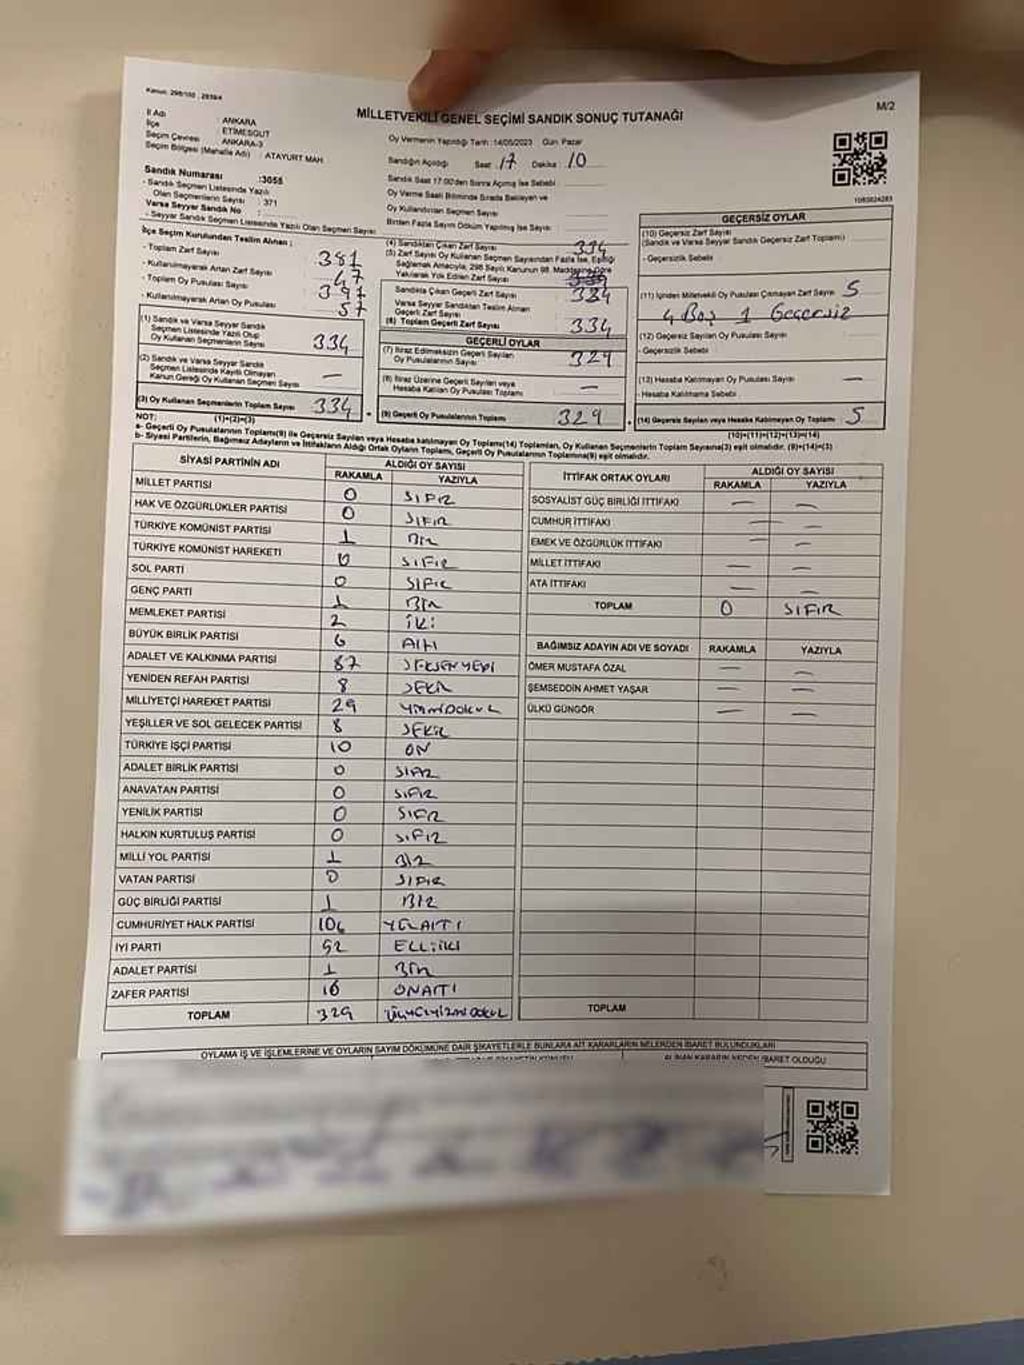 Kanun: 298/105 , 2839/4
MİLLETVEKİLİ GENEL SEÇİMİ SANDIK SONUÇ TUTANAĞI
M/2
İl Adı : ANKARA
İlçe : ETİMESGUT
Seçim Çevresi : ANKARA-3
Seçim Bölgesi (Mahalle Adı) : ATAYURT MAH
Oy Vermenin Yapıldığı Tarih :14/05/2023 Gün Pazar
Sandığın Açıldığı Saat 17 Dakika 10
Sandık Saat 17:00'den Sonra Açılmış İse Sebebi
Oy Verme Saati Bitiminde Sırada Bekleyen ve
Oy Kullandırılan Seçmen Sayısı
Birden Fazla Sayım Döküm Yapılmış İse Sayısı
Sandık Numarası :3055
- Sandık Seçmen Listesinde Yazılı
Olan Seçmenlerin Sayısı : 371
Varsa Seyyar Sandık No :
- Seyyar Sandık Seçmen Listesinde Yazılı Olan Seçmen Sayısı
İlçe Seçim Kurulundan Teslim Alınan :
- Toplam Zarf Sayısı 381
- Kullanılmayarak Artan Zarf Sayısı 47
- Toplam Oy Pusulası Sayısı 391
- Kullanılmayarak Artan Oy Pusulası 57
(1) Sandık ve Varsa Seyyar Sandık
Seçmen Listesinde Yazılı Olup
Oy Kullanan Seçmenlerin Sayısı 334
(2) Sandık ve Varsa Seyyar Sandık
Seçmen Listesinde Kayıtlı Olmayan
Kanun Gereği Oy Kullanan Seçmen Sayısı —
(3) Oy Kullanan Seçmenlerin Toplam Sayısı 334
(1)+(2)=(3)
(4) Sandıktan Çıkan Zarf Sayısı 334
(5) Zarf Sayısı Oy Kullanan Seçmen Sayısından Fazla İse, Eşitliği
Sağlamak Amacıyla, 298 Sayılı Kanunun 98. Maddesine Göre
Yakılarak Yok Edilen Zarf Sayısı
Sandıkta Çıkan Geçerli Zarf Sayısı 334
Varsa Seyyar Sandıktan Teslim Alınan
Geçerli Zarf Sayısı
(6) Toplam Geçerli Zarf Sayısı 334
GEÇERLİ OYLAR
(7) İtiraz Edilmeksizin Geçerli Sayılan
Oy Pusulalarının Sayısı 329
(8) İtiraz Üzerine Geçerli Sayılan veya
Hesaba Katılan Oy Pusulası Toplamı —
(9) Geçerli Oy Pusulalarının Toplamı 329
GEÇERSİZ OYLAR
(10) Geçersiz Zarf Sayısı
(Sandık ve Varsa Seyyar Sandık Geçersiz Zarf Toplamı)
- Geçersizlik Sebebi
(11) İçinden Milletvekili Oy Pusulası Çıkmayan Zarf Sayısı 5
4 Boş 1 Geçersiz
(12) Geçersiz Sayılan Oy Pusulası Sayısı
- Geçersizlik Sebebi
(13) Hesaba Katılmayan Oy Pusulası Sayısı —
- Hesaba Katılmama Sebebi
(14) Geçersiz Sayılan veya Hesaba Katılmayan Oy Toplamı 5
(10)+(11)+(12)+(13)=(14)
NOT:
a- Geçerli Oy Pusulalarının Toplamı(9) ile Geçersiz Sayılan veya Hesaba katılmayan Oy Toplamı(14) Toplamları, Oy Kullanan Seçmenlerin Toplam Sayısına(3) eşit olmalıdır. (9)+(14)=(3)
b- Siyasi Partilerin, Bağımsız Adayların ve İttifakların Aldığı Ortak Oyların Toplamı, Geçerli Oy Pusulalarının Toplamına(9) eşit olmalıdır.
SİYASİ PARTİNİN ADI ALDIĞI OY SAYISI
RAKAMLA YAZIYLA
MİLLET PARTİSİ 0 SIFIR
HAK VE ÖZGÜRLÜKLER PARTİSİ 0 SIFIR
TÜRKİYE KOMÜNİST PARTİSİ 1 BİR
TÜRKİYE KOMÜNİST HAREKETİ 0 SIFIR
SOL PARTİ 0 SIFIR
GENÇ PARTİ 1 BİR
MEMLEKET PARTİSİ 2 İKİ
BÜYÜK BİRLİK PARTİSİ 6 ALTI
ADALET VE KALKINMA PARTİSİ 87 SEKSENYEDİ
YENİDEN REFAH PARTİSİ 8 SEKİZ
MİLLİYETÇİ HAREKET PARTİSİ 29 YİRMİDOKUZ
YEŞİLLER VE SOL GELECEK PARTİSİ 8 SEKİZ
TÜRKİYE İŞÇİ PARTİSİ 10 ON
ADALET BİRLİK PARTİSİ 0 SIFIR
ANAVATAN PARTİSİ 0 SIFIR
YENİLİK PARTİSİ 0 SIFIR
HALKIN KURTULUŞ PARTİSİ 0 SIFIR
MİLLİ YOL PARTİSİ 1 BİR
VATAN PARTİSİ 0 SIFIR
GÜÇ BİRLİĞİ PARTİSİ 1 BİR
CUMHURİYET HALK PARTİSİ 106 YÜZALTI
İYİ PARTİ 52 ELLİİKİ
ADALET PARTİSİ 1 BİR
ZAFER PARTİSİ 16 ONALTI
TOPLAM 329 ÜÇYÜZYİRMİDOKUZ
İTTİFAK ORTAK OYLARI ALDIĞI OY SAYISI
RAKAMLA YAZIYLA
SOSYALİST GÜÇ BİRLİĞİ İTTİFAKI — —
CUMHUR İTTİFAKI — —
EMEK VE ÖZGÜRLÜK İTTİFAKI — —
MİLLET İTTİFAKI — —
ATA İTTİFAKI — —
TOPLAM 0 SIFIR
BAĞIMSIZ ADAYIN ADI VE SOYADI RAKAMLA YAZIYLA
ÖMER MUSTAFA ÖZAL — —
ŞEMSEDDİN AHMET YAŞAR — —
ÜLKÜ GÜNGÖR — —
TOPLAM
OYLAMA İŞ VE İŞLEMLERİNE VE OYLARIN SAYIM DÖKÜMÜNE DAİR ŞİKAYETLERLE BUNLARA AİT KARARLARIN NELERDEN İBARET BULUNDUKLARI
ALINAN KARARIN NEDEN İBARET OLDUĞU